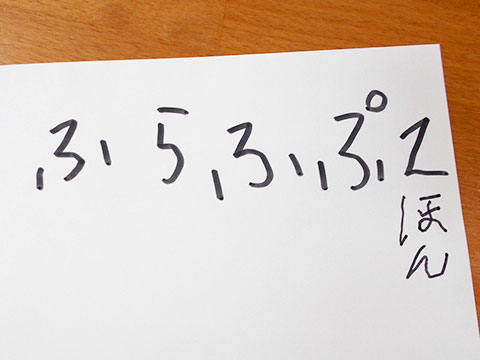 ふらふぷ2
ほん